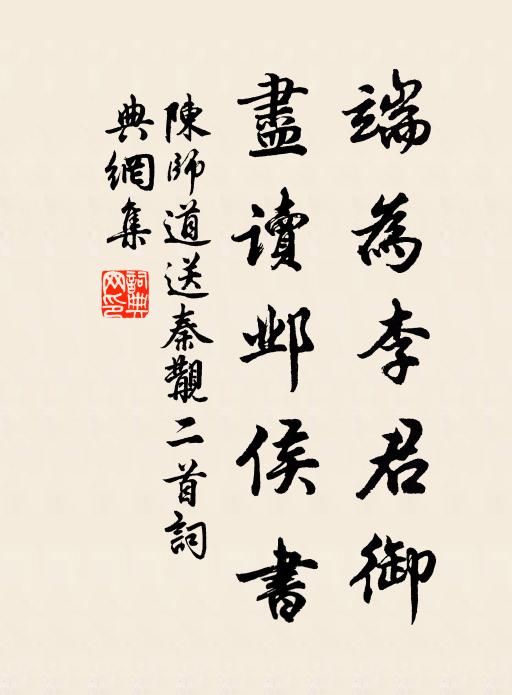 端為李君御
盡讀邺侯書
陳師道送秦觀二首詞
典網集
詞典網印